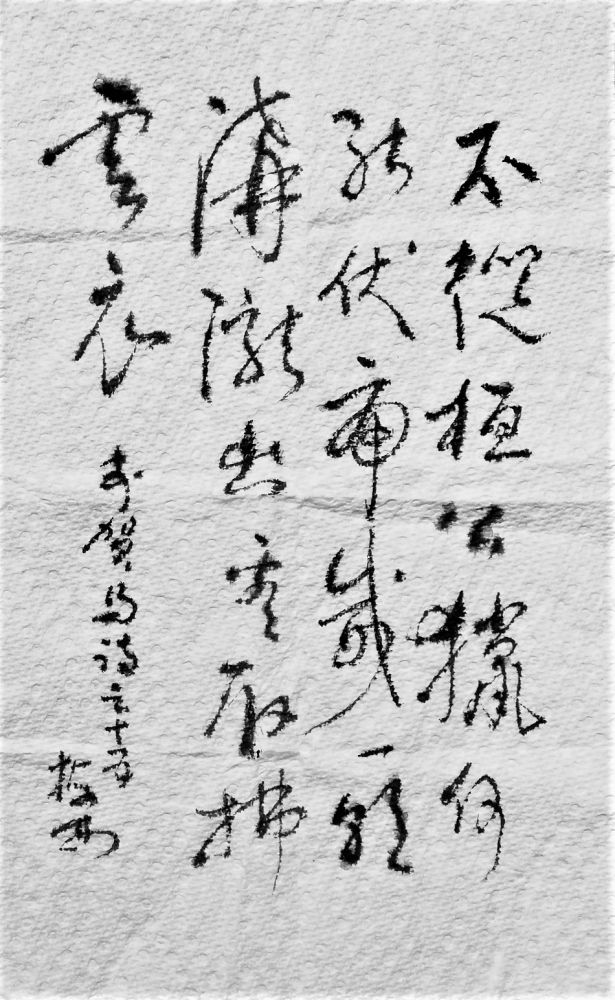 不從桓公獵何
能伏虎威一朝
溝隴出看取拂
雲衣
李賀馬詩之十五